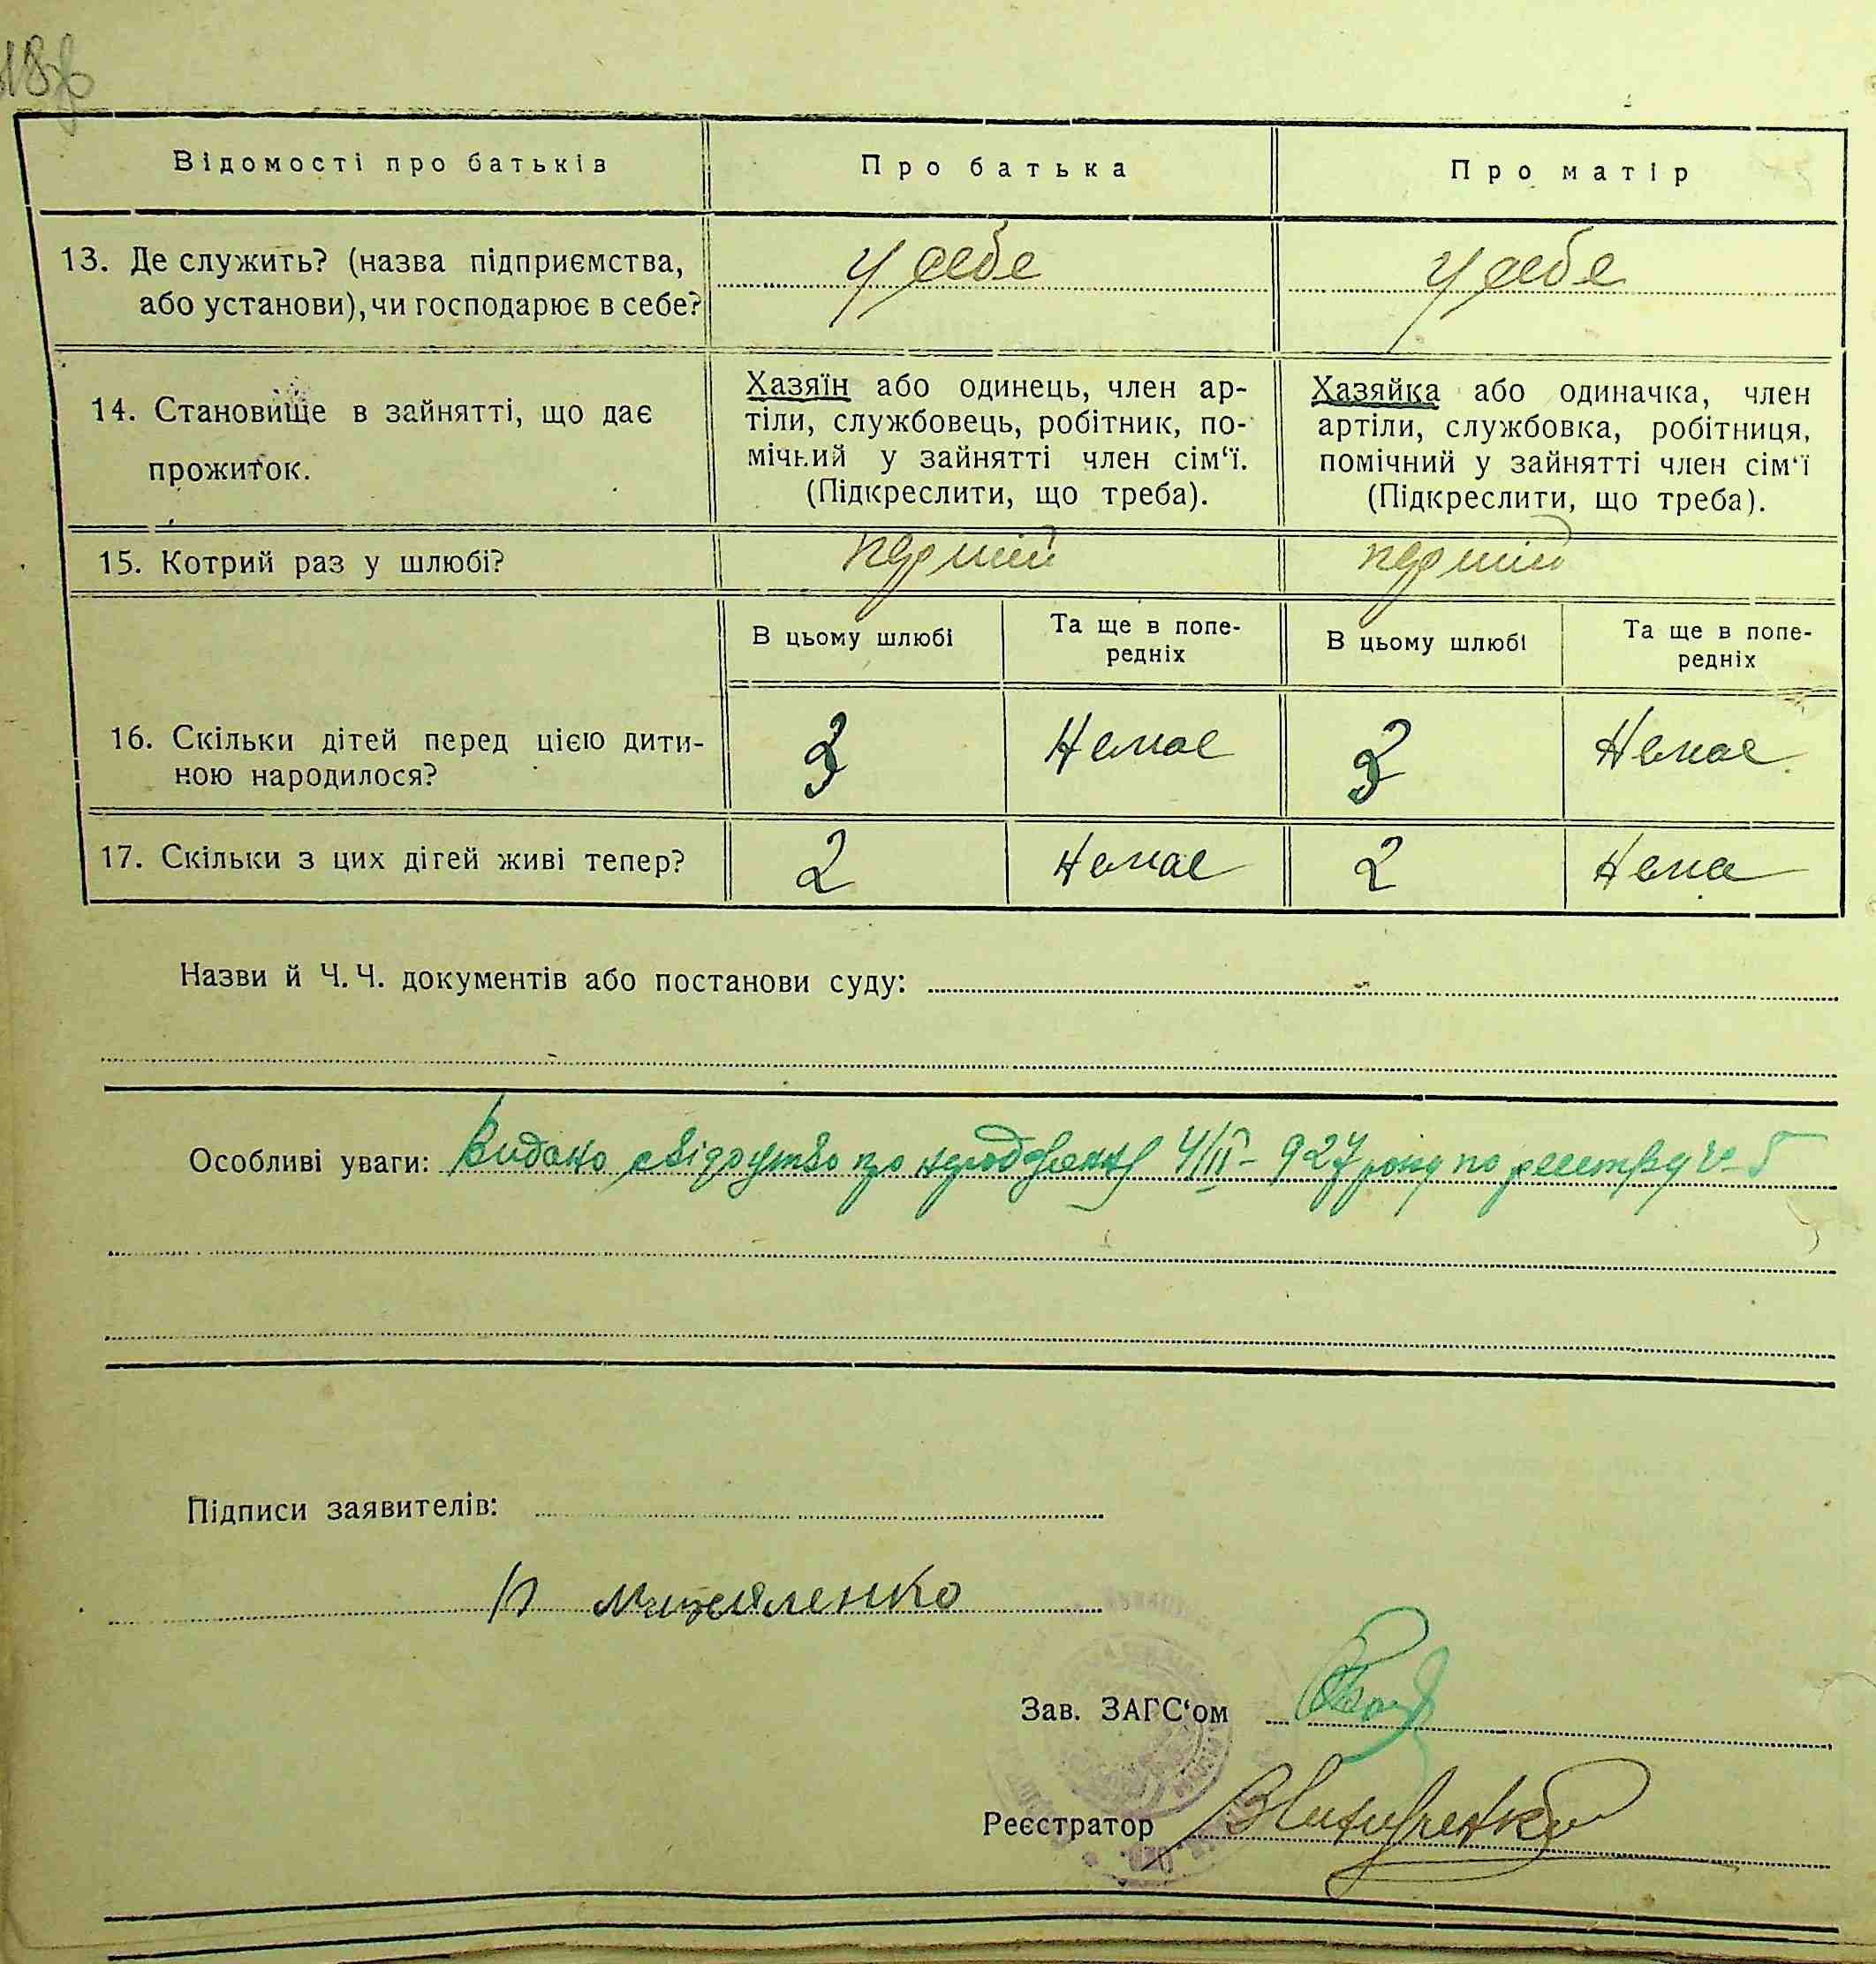 Відомості про батьків
Про батька
Про матір
13. Де служить? (назва підприємства,
або установи), чи господарює в себе?
у себе
у себе
14. Становище в зайнятті, що дає
прожиток.
Хазяїн або одинець, член ар-
тіли, службовець, робітник, по-
мічний у зайнятті член сім‘ї.
(Підкреслити, що треба).
Хазяйка або одиначка, член
артіли, службовка, робітниця,
помічний у зайнятті член сім‘ї
(Підкреслити, що треба).
15. Котрий раз у шлюбі?
перший
перший
В цьому шлюбі
Та ще в попе-
редніх
В цьому шлюбі
Та ще в попе-
редніх
16. Скільки дітей перед цією дити-
ною народилося?
3
Немає
3
Немає
17. Скільки з цих дітей живі тепер?
2
Немає
2
Нема
Назви й Ч. Ч. документів або постанови суду:
Особливі уваги: Видано свідоцтво про народження 4/II - 927 року по реестру № 5
Підписи заявителів:
Зав. ЗАГС‘ом
Реєстратор